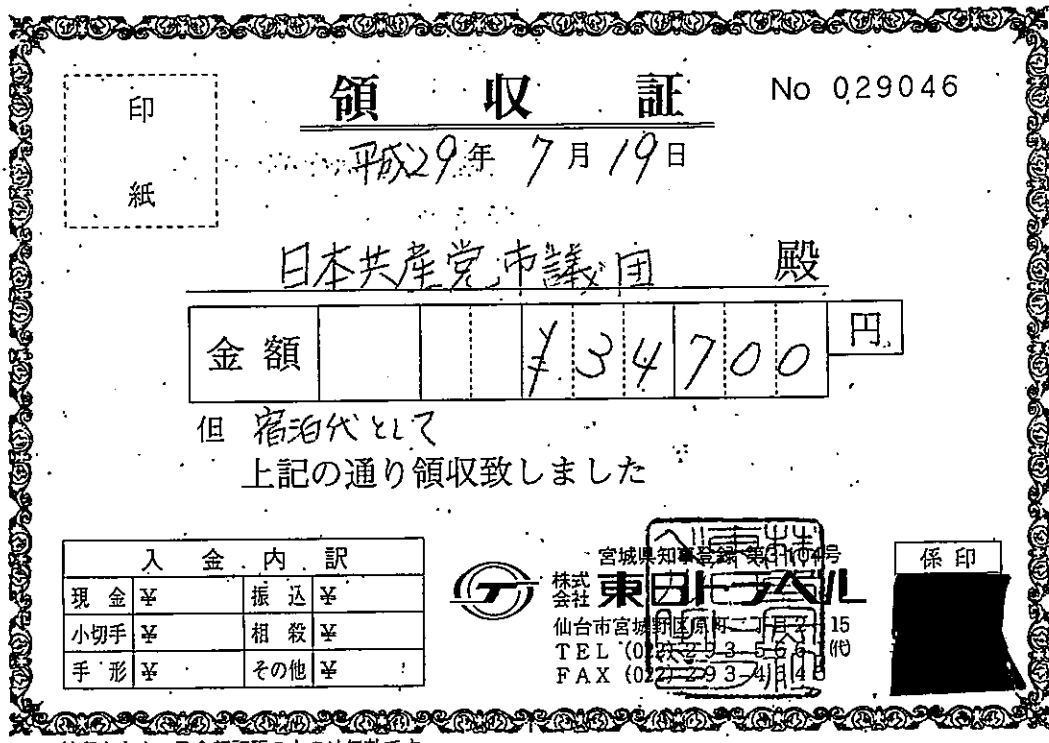 領収証
No 029046
印紙
平成29年 7月19日
日本共産党市議団 殿
金額 ¥34700 円
但 宿泊代として
上記の通り領収致しました
入金内訳
現金 ¥ 振込 ¥
小切手 ¥ 相殺 ¥
手形 ¥ その他 ¥
宮城県知事登録 第3-104号
株式会社 東日トラベル
仙台市宮城野区原町二丁目2-15
TEL (022) 293-566 (代)
FAX (022) 293-4
係印